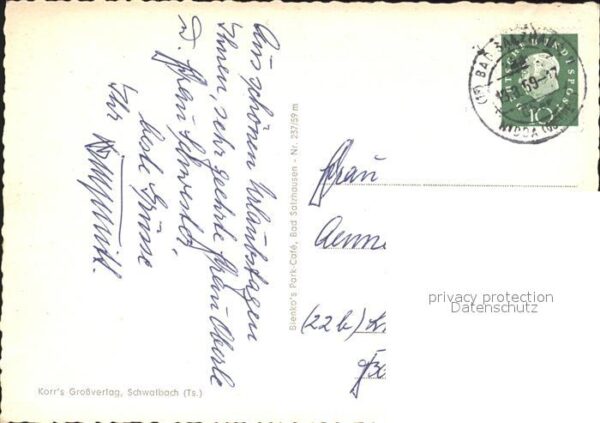 Aus schönen Urlaubstagen
Ihnen, sehr geehrte Frau Oberle
u. Frau Schwester,
beste Grüsse
Ihr
Blenko's Park-Café, Bad Salzhausen - Nr. 237/59 m
Korr's Großverlag, Schwalbach (Ts.)
BAD SALZHAUSEN
NIDDA
10
Frau
Aenne
(22b)
privacy protection
Datenschutz